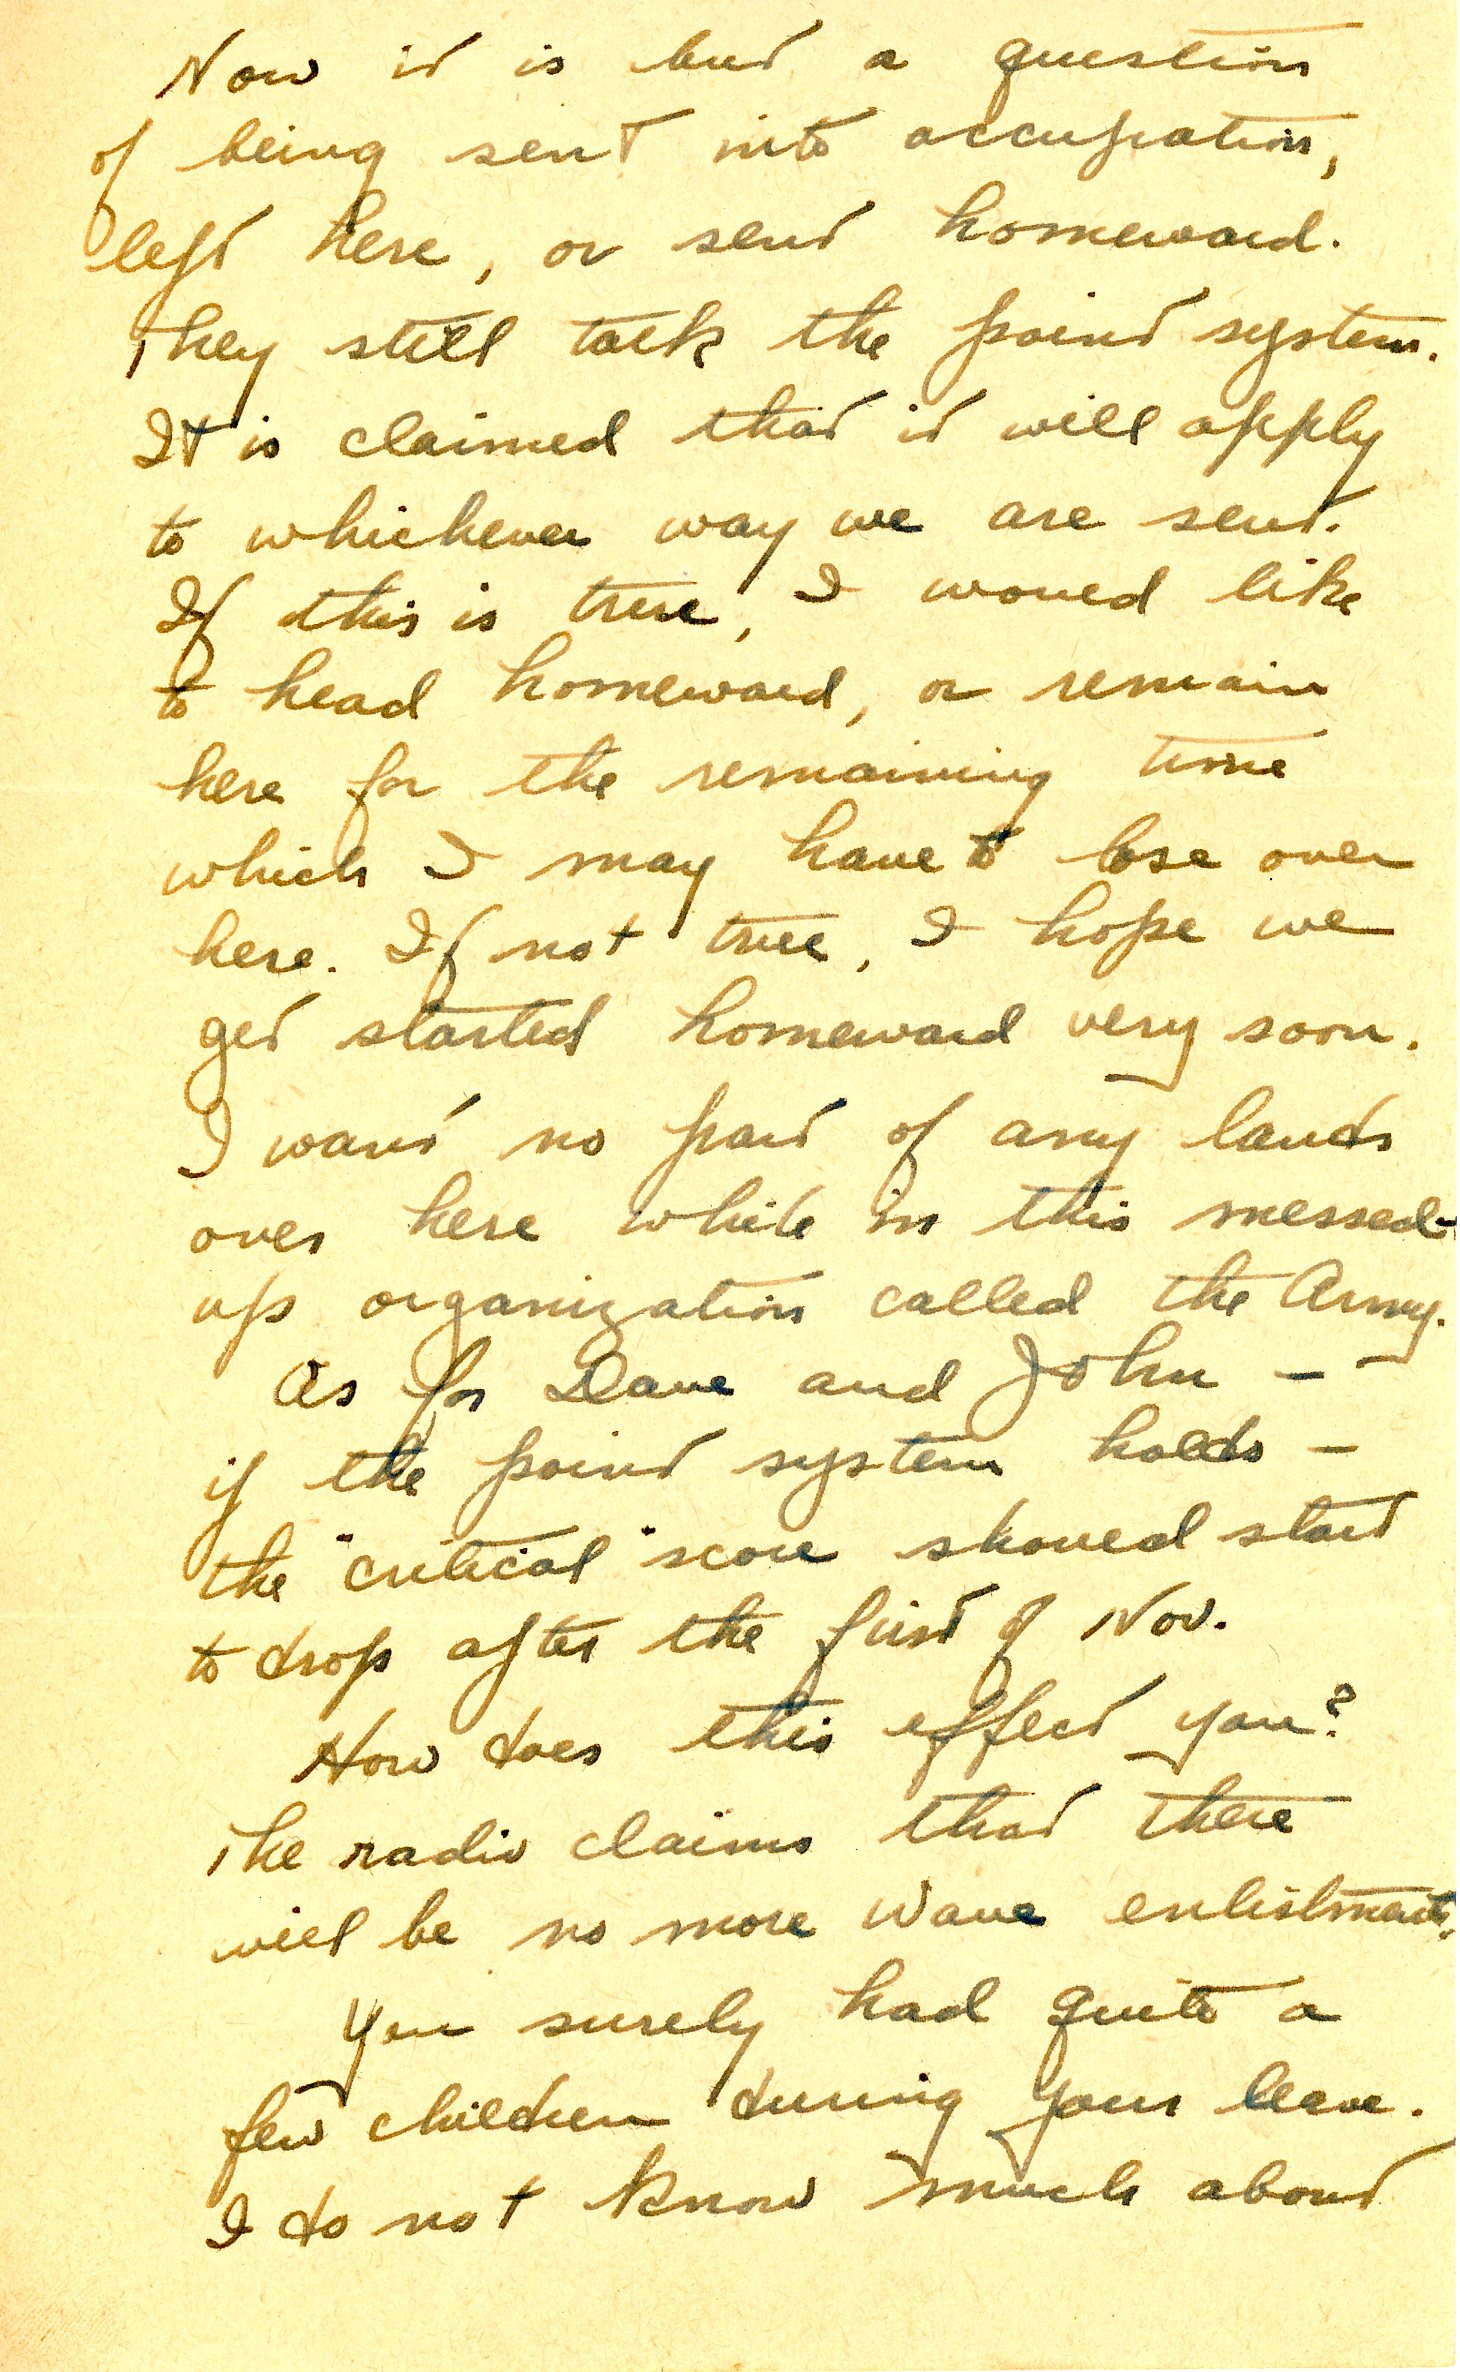 Now it is but a question
of being sent into occupation,
left here, or sent homeward.
They still talk the point system.
It is claimed that it will apply
to whichever way we are sent.
If this is true, I would like
to head homeward, or remain
here for the remaining time
which I may have to lose over
here. If not true, I hope we
get started homeward very soon.
I want no part of any lands
over here while in this messed-
up organization called the Army.
As for Dave and John –
if the point system holds –
the "critical" score should start
to drop after the first of Nov.
How does this effect you?
The radio claims that there
will be no more Wave enlistments.
You surely had quite a
few children during your leave.
I do not know much about